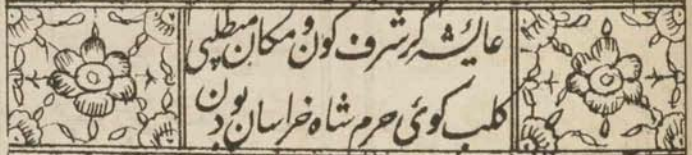 عایشه گر شرف کون و مکان میطلبی
کلب کوئی حرم شاه خراسان بودن